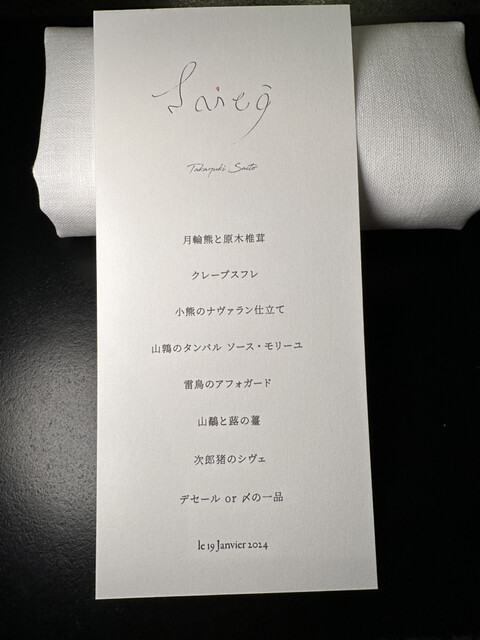 Saito
Takayuki Saito
月輪熊と原木椎茸
クレープスフレ
小熊のナヴァラン仕立て
山鶉のタンバル ソース・モリーユ
雷鳥のアフォガード
山鷸と蕗の薹
次郎猪のシヴェ
デセール or 〆の一品
le 19 Janvier 2024